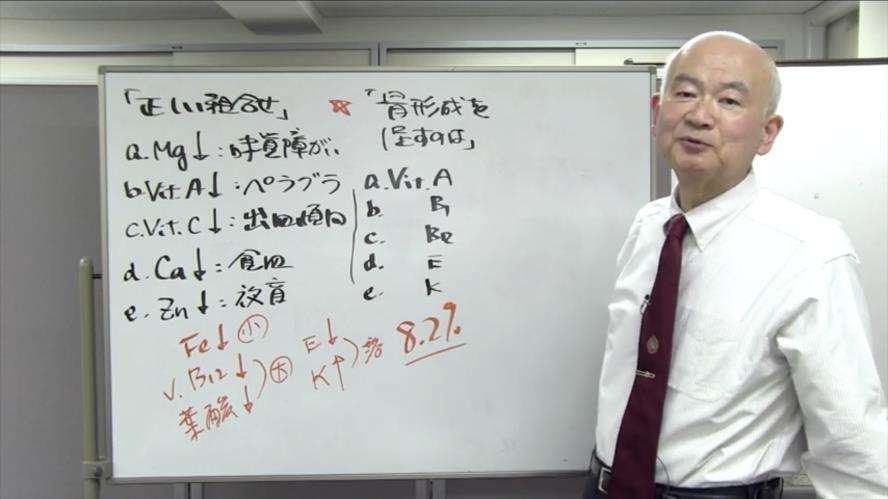 「正しい組合せ」
a. Mg↓:味覚障がい
b. Vit. A↓:ペラグラ
c. Vit. C↓:出血傾向
d. Ca↓:貧血
e. Zn↓:
Fe↓ 小
V. B12↓
葉酸↓
大
E↓
K↑
溶
8.2%
☆「骨形成を
促すのは」
a. Vit. A
b. B1
c.
d. E
e. K